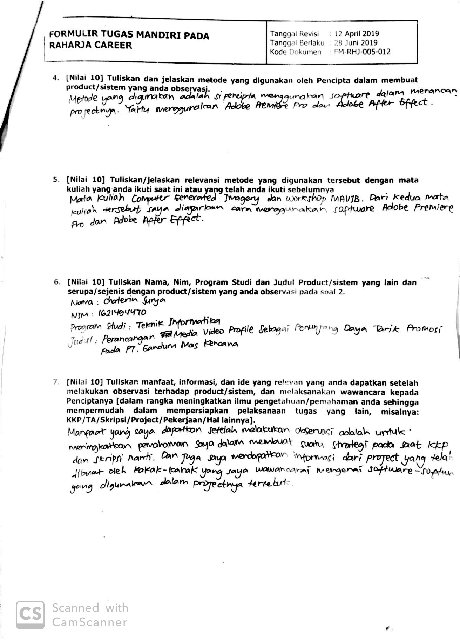 FORMULIR TUGAS MANDIRI PADA
RAHARJA CAREER
Tanggal Revisi : 12 April 2019
Tanggal Berlaku : 28 Juni 2019
Kode Dokumen : FM-RHJ-005-012
4. [Nilai 10] Tuliskan dan jelaskan metode yang digunakan oleh Pencipta dalam membuat
product/sistem yang anda observasi.
Metode yang digunakan adalah si pencipta menggunakan software dalam merancang
projectnya. Yaitu menggunakan Adobe Premiere Pro dan Adobe After Effect.
5. [Nilai 10] Tuliskan/jelaskan relevansi metode yang digunakan tersebut dengan mata
kuliah yang anda ikuti saat ini atau yang telah anda ikuti sebelumnya
Mata kuliah Computer Generated Imagery dan Workshop MAVIB. Dari kedua mata
kuliah tersebut saya diajarkan cara menggunakan software Adobe Premiere
Pro dan Adobe After Effect.
6. [Nilai 10] Tuliskan Nama, Nim, Program Studi dan Judul Product/sistem yang lain dan
serupa/sejenis dengan product/sistem yang anda observasi pada soal 2.
Nama : Chaterin Surya
NIM : 1621464470
Program Studi : Teknik Informatika
Judul : Perancangan Media Video Profile Sebagai Penunjang Daya Tarik Promosi
Pada PT. Gandum Mas Kencana
7. [Nilai 10] Tuliskan manfaat, informasi, dan ide yang relevan yang anda dapatkan setelah
melakukan observasi terhadap product/sistem, dan melaksanakan wawancara kepada
Penciptanya [dalam rangka meningkatkan ilmu pengetahuan/pemahaman anda sehingga
mempermudah dalam mempersiapkan pelaksanaan tugas yang lain, misalnya:
KKP/TA/Skripsi/Project/Pekerjaan/Hal lainnya].
Manfaat yang saya dapatkan setelah melakukan observasi adalah untuk
meningkatkan pemahaman saya dalam membuat suatu strategi pada saat KKP
dan skripsi nanti. Dan juga saya mendapatkan informasi dari project yang telah
dibuat oleh kakak-kakak yang saya wawancarai mengenai software-software
yang digunakan dalam projectnya tersebut.
CS
Scanned with
CamScanner